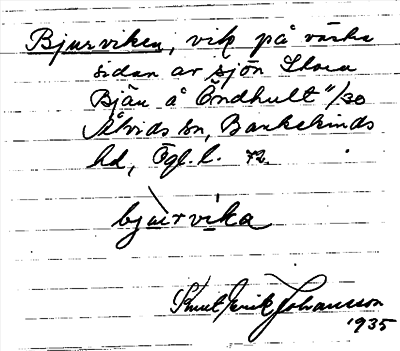 Bjurviken, vik på västra
sidan av sjön Stora
Bjän å Öndhult 11/30
Åtvids sn, Bankekinds
hd, Ögl. l. 72
bjùrvìka
Knut Erik Johansson
1935